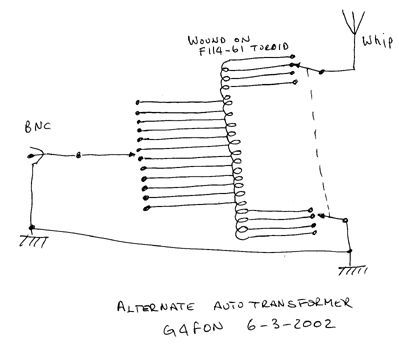 WOUND ON
F114-61 TOROID
Whip
BNC
ALTERNATE AUTOTRANSFORMER
G4FON 6-3-2002